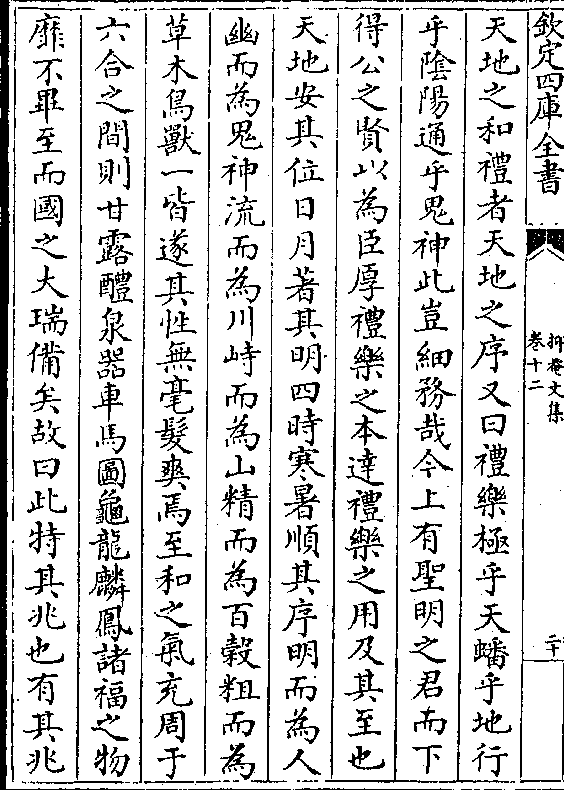 欽定四庫全書
抑菴文集
卷十二
二十
天地之和禮者天地之序又曰禮樂極乎天蟠乎地行
乎陰陽通乎鬼神此豈細務哉今上有聖明之君而下
得公之賢以為臣厚禮樂之本達禮樂之用及其至也
天地安其位日月著其明四時寒暑順其序明而為人
幽而為鬼神流而為川峙而為山精而為百穀粗而為
草木鳥獸一皆遂其性無毫髮爽焉至和之氣充周于
六合之間則甘露醴泉器車馬圖龜龍麟鳳諸福之物
靡不畢至而國之大瑞備矣故曰此特其兆也有其兆